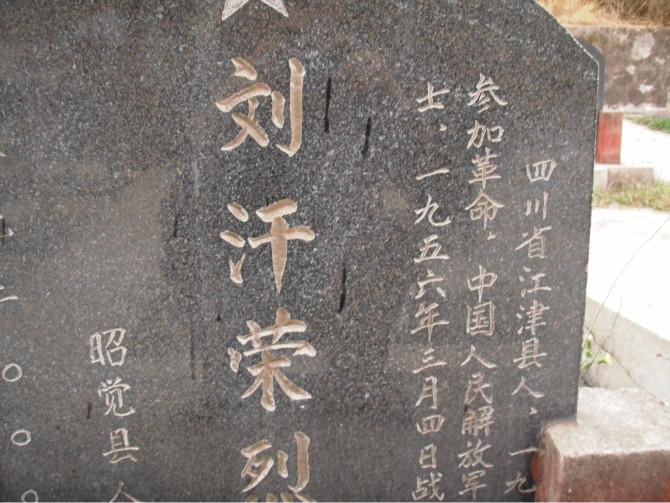 四川省江津县人，一九
参加革命，中国人民解放军
士，一九五六年三月四日战
刘汗荣烈
昭觉县人
二〇〇